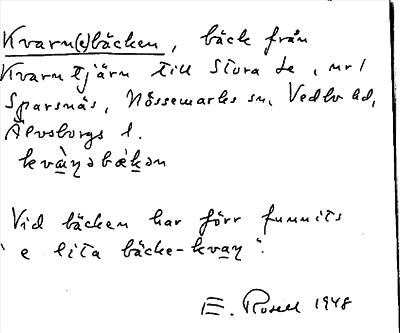 Kvarn(e)bäcken, bäck från
Kvarntjärn till Stora Le, nr 1
Sparsnäs, Nössemarks sn, Vedbo hd,
Älvsborgs l.
Vid bäcken har förr funnits
"e lita bäcke-kvaṇ".
E. Rosell 1948